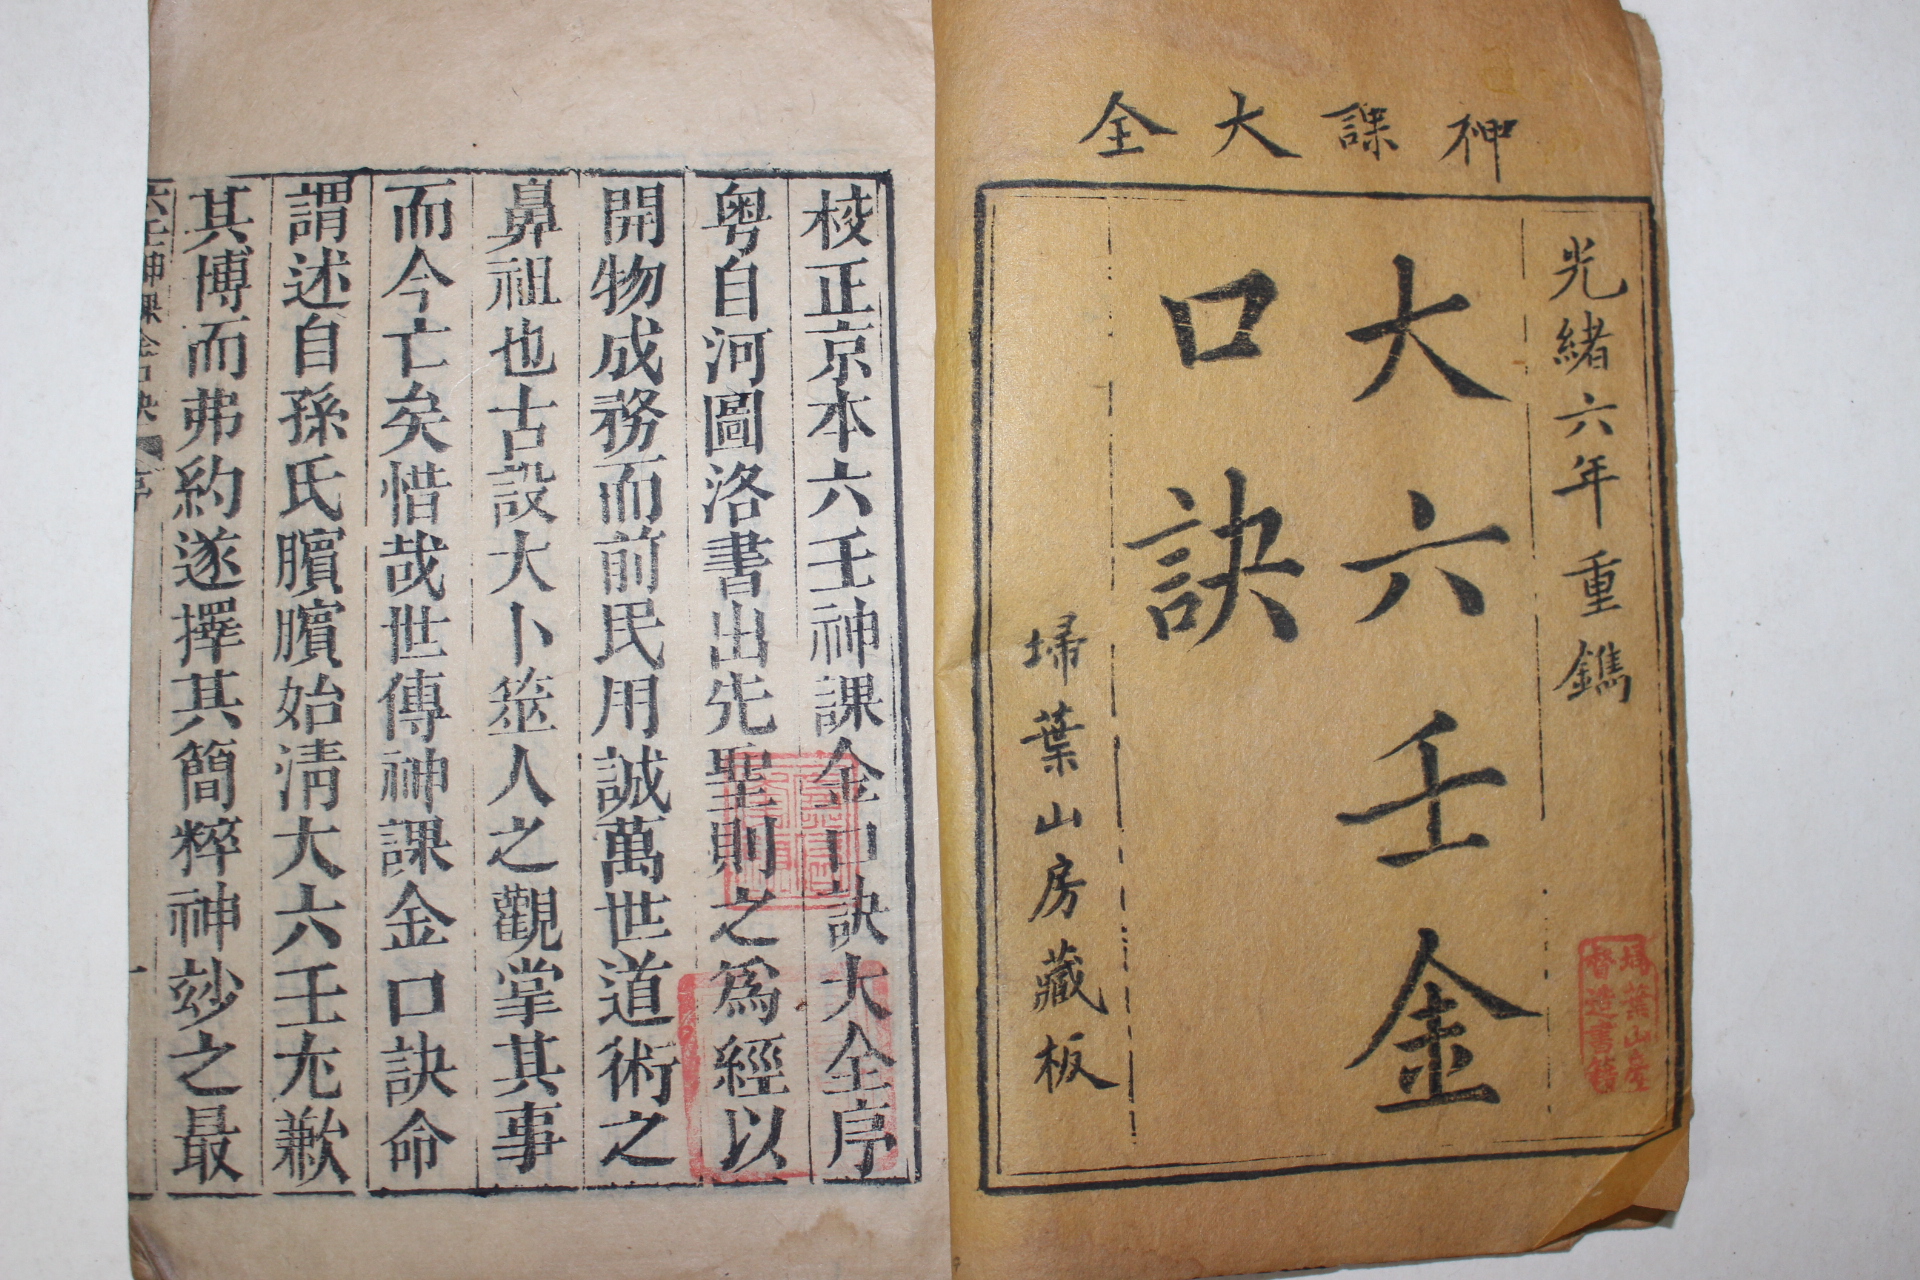 神課大全
光緒六年重鐫
大六壬金
口訣
埽葉山房藏板
埽葉山房
督造書籍
校正京本六壬神課金口訣大全序
粵自河圖洛書出先聖則之爲經以
開物成務而前民用誠萬世道術之
鼻祖也古設大卜簭人之觀掌其事
而今亡矣惜哉世傳神課金口訣命
謂述自孫氏臏臏始淸大六壬尢歉
其博而弗約遂擇其簡粹神玅之最
六壬神課金口訣 序 一